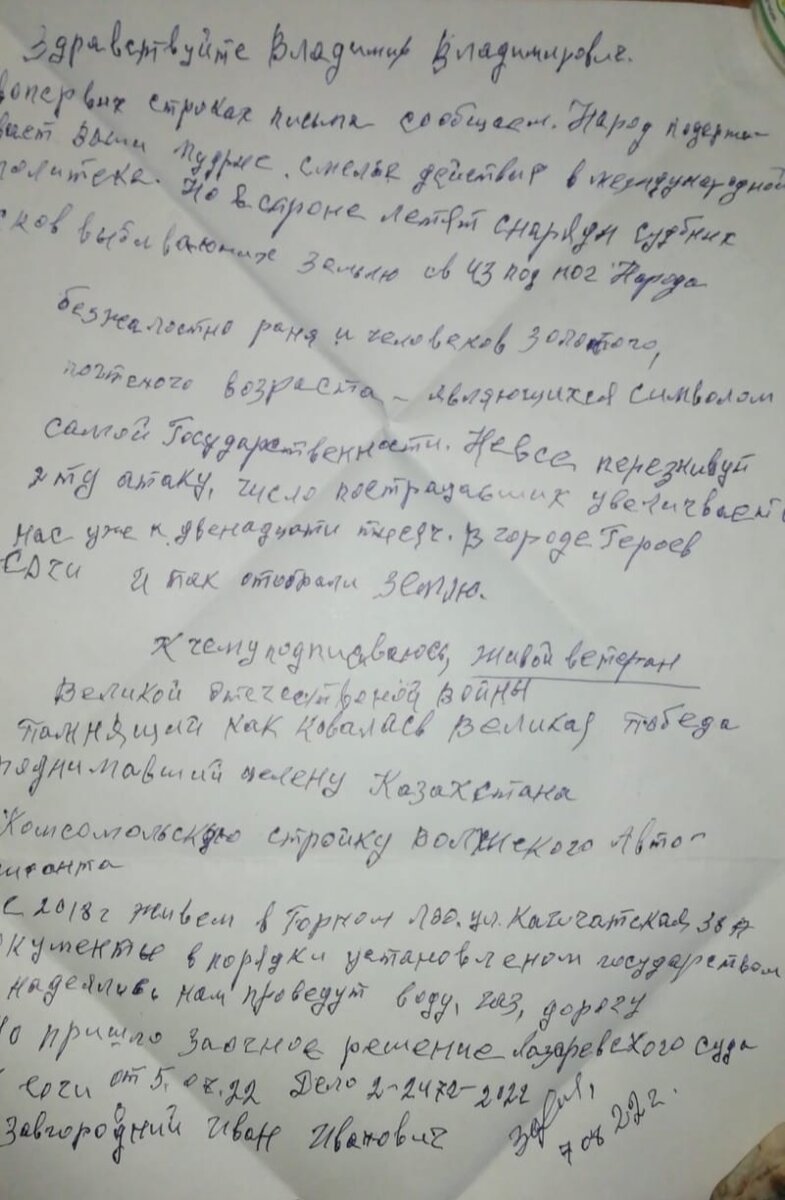 Здравствуйте Владимир Владимирович.
вопервых строках письма сообщаем. Народ подержи-
вает ваши мудрые, смелые действия в международной
политека. Но в строне летят снаряды судбних
сков выбивающих землю св из под ног Народа
безжалостно раня и человеков золотого,
почтеного возраста – являющихся символом
самой Государственности. Невсе переживут
эту атаку, число пострадавших увеличвает
нас уже к двенадцати тысяч. В городе Героев
Сочи и так отобрали землю.
К чему подписываюсь, живой ветеран
Великой отечественой войны
Помнящий как ковалась Великая победа
подниमавший целену Казахстана
Комсомольскую стройку Волжского Авто-
гиганта
с 2018г живем в Горном Лоо. ул. Камчатская 38А
окументы в порядки установленом государством
надеялись нам проведут воду, газ, дорогу
Но пришло заочное решение Лазаревского суда
г сочи от 5.07.22 Дело 2-2472-2022
Завгородний Иван Иванович
7 08 22г.